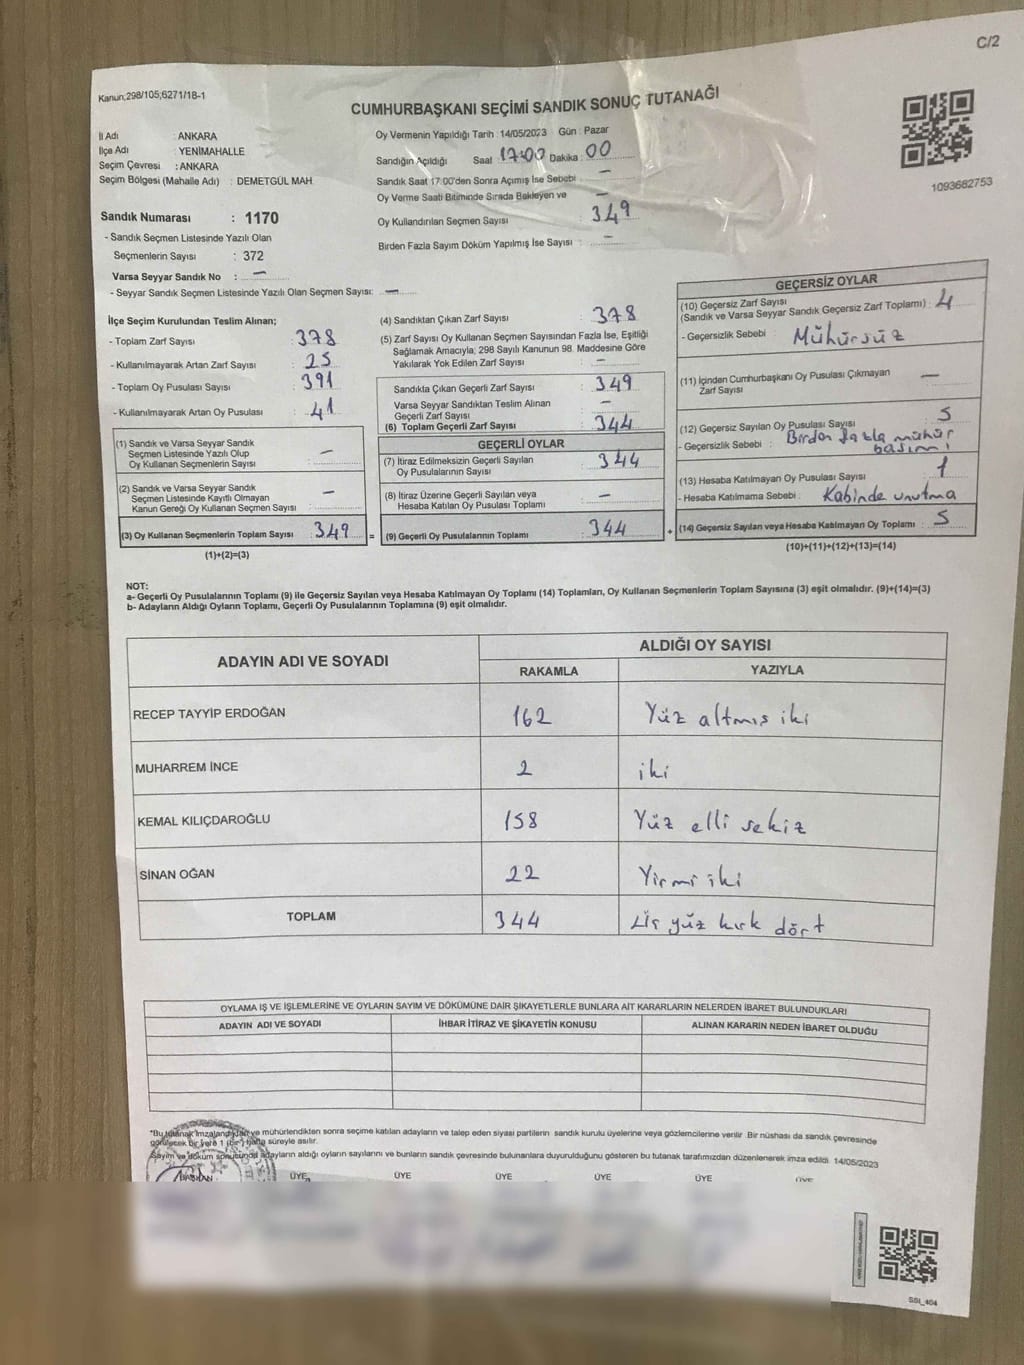 C/2
Kanun;298/105;6271/18-1
CUMHURBAŞKANI SEÇİMİ SANDIK SONUÇ TUTANAĞI
1093682753
İl Adı : ANKARA
İlçe Adı : YENİMAHALLE
Seçim Çevresi : ANKARA
Seçim Bölgesi (Mahalle Adı) : DEMETGÜL MAH.
Sandık Numarası : 1170
- Sandık Seçmen Listesinde Yazılı Olan
Seçmenlerin Sayısı : 372
Varsa Seyyar Sandık No : —
- Seyyar Sandık Seçmen Listesinde Yazılı Olan Seçmen Sayısı: —
Oy Vermenin Yapıldığı Tarih : 14/05/2023 Gün : Pazar
Sandığın Açıldığı Saat 17:00 Dakika : 00
Sandık Saat 17:00'den Sonra Açımış İse Sebebi : —
Oy Verme Saati Bitiminde Sırada Bekleyen ve —
Oy Kullandırılan Seçmen Sayısı : 349
Birden Fazla Sayım Döküm Yapılmış İse Sayısı : —
İlçe Seçim Kurulundan Teslim Alınan;
- Toplam Zarf Sayısı : 378
- Kullanılmayarak Artan Zarf Sayısı : 25
- Toplam Oy Pusulası Sayısı : 391
- Kullanılmayarak Artan Oy Pusulası : 41
(1) Sandık ve Varsa Seyyar Sandık
Seçmen Listesinde Yazılı Olup
Oy Kullanan Seçmenlerin Sayısı : —
(2) Sandık ve Varsa Seyyar Sandık
Seçmen Listesinde Kayıtlı Olmayan
Kanun Gereği Oy Kullanan Seçmen Sayısı : —
(3) Oy Kullanan Seçmenlerin Toplam Sayısı : 349 =
(1)+(2)=(3)
(4) Sandıktan Çıkan Zarf Sayısı : 378
(5) Zarf Sayısı Oy Kullanan Seçmen Sayısından Fazla İse, Eşitliği
Sağlamak Amacıyla; 298 Sayılı Kanunun 98. Maddesine Göre
Yakılarak Yok Edilen Zarf Sayısı : —
Sandıkta Çıkan Geçerli Zarf Sayısı : 349
Varsa Seyyar Sandıktan Teslim Alınan
Geçerli Zarf Sayısı : —
(6) Toplam Geçerli Zarf Sayısı : 344
GEÇERLİ OYLAR
(7) İtiraz Edilmeksizin Geçerli Sayılan
Oy Pusulalarının Sayısı : 344
(8) İtiraz Üzerine Geçerli Sayılan veya
Hesaba Katılan Oy Pusulası Toplamı : —
(9) Geçerli Oy Pusulalarının Toplamı : 344 +
GEÇERSİZ OYLAR
(10) Geçersiz Zarf Sayısı
(Sandık ve Varsa Seyyar Sandık Geçersiz Zarf Toplamı) : 4
- Geçersizlik Sebebi : Mühürsüz
(11) İçinden Cumhurbaşkanı Oy Pusulası Çıkmayan
Zarf Sayısı : —
(12) Geçersiz Sayılan Oy Pusulası Sayısı : 5
- Geçersizlik Sebebi : Birden fazla mühür
basımı
(13) Hesaba Katılmayan Oy Pusulası Sayısı : 1
- Hesaba Katılmama Sebebi : Kabinde unutma
(14) Geçersiz Sayılan veya Hesaba Katılmayan Oy Toplamı : 5
(10)+(11)+(12)+(13)=(14)
NOT:
a- Geçerli Oy Pusulalarının Toplamı (9) ile Geçersiz Sayılan veya Hesaba Katılmayan Oy Toplamı (14) Toplamları, Oy Kullanan Seçmenlerin Toplam Sayısına (3) eşit olmalıdır. (9)+(14)=(3)
b- Adayların Aldığı Oyların Toplamı, Geçerli Oy Pusulalarının Toplamına (9) eşit olmalıdır.
ADAYIN ADI VE SOYADI
ALDIĞI OY SAYISI
RAKAMLA YAZIYLA
RECEP TAYYİP ERDOĞAN 162 Yüz altmış iki
MUHARREM İNCE 2 iki
KEMAL KILIÇDAROĞLU 158 Yüz elli sekiz
SİNAN OĞAN 22 Yirmi iki
TOPLAM 344 üç yüz kırk dört
OYLAMA İŞ VE İŞLEMLERİNE VE OYLARIN SAYIM VE DÖKÜMÜNE DAİR ŞİKAYETLERLE BUNLARA AİT KARARLARIN NELERDEN İBARET BULUNDUKLARI
ADAYIN ADI VE SOYADI İHBAR İTİRAZ VE ŞİKAYETİN KONUSU ALINAN KARARIN NEDEN İBARET OLDUĞU
*Bu tutanak imzalandıktan ve mühürlendikten sonra seçime katılan adayların ve talep eden siyasi partilerin sandık kurulu üyelerine veya gözlemcilerine verilir. Bir nüshası da sandık çevresinde
görülecek bir yere 1 (bir) hafta süreyle asılır.
Sayım ve döküm sonucunda adayların aldığı oyların sayılarını ve bunların sandık çevresinde bulunanlara duyurulduğunu gösteren bu tutanak tarafımızdan düzenlenerek imza edildi. 14/05/2023
BAŞKAN ÜYE ÜYE ÜYE ÜYE ÜYE ÜYE
SSI_404